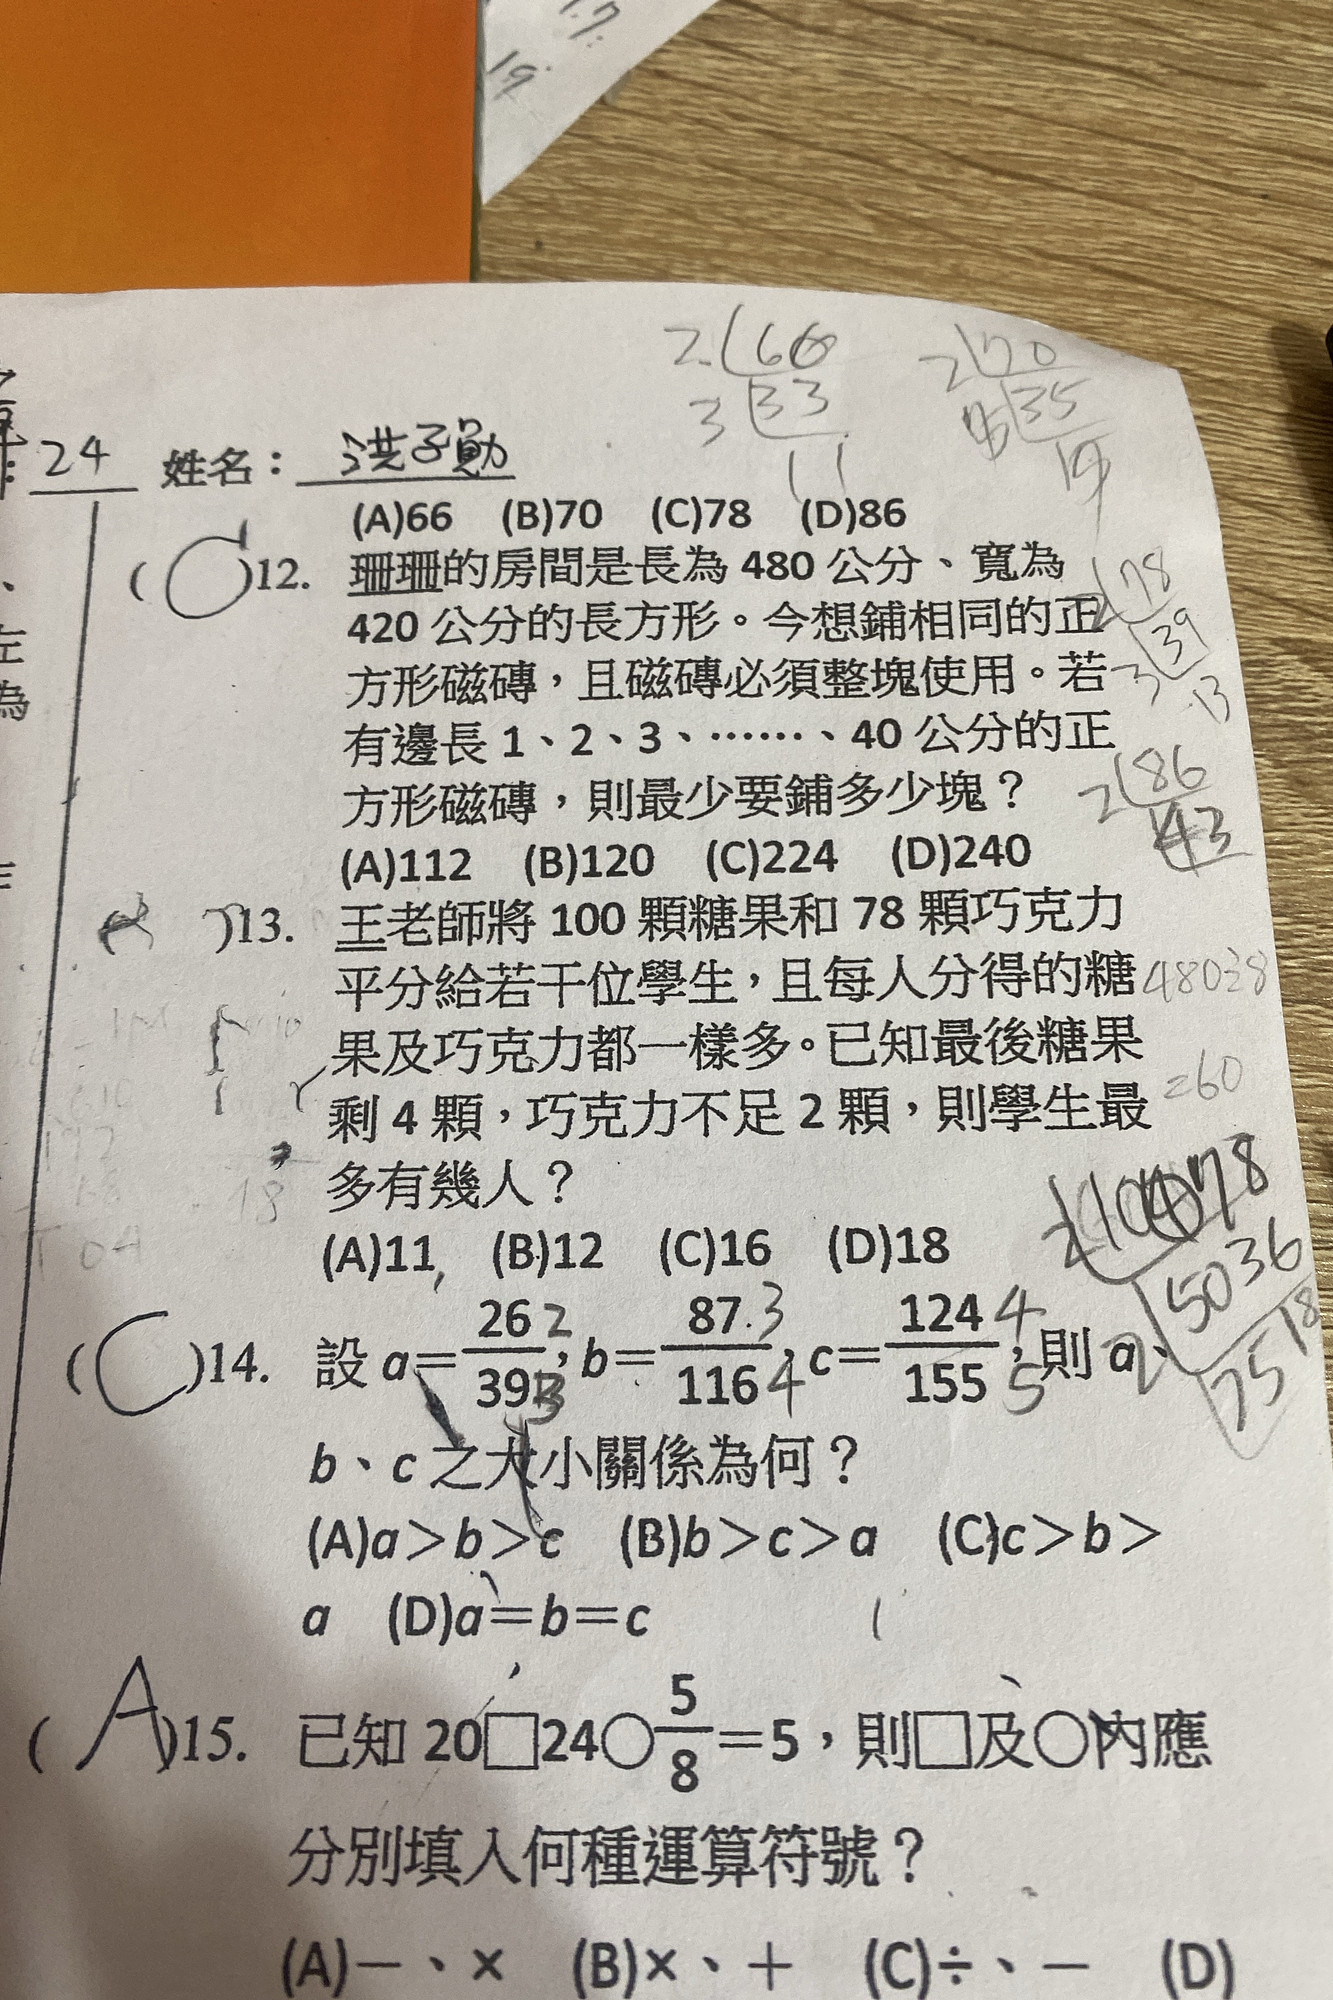 19.
2 66
3 33
11
2 70
35
24 姓名： 洪子勛
(A)66 (B)70 (C)78 (D)86
( C )12. 珊珊的房間是長為 480 公分、寬為
420 公分的長方形。今想鋪相同的正
方形磁磚，且磁磚必須整塊使用。若
有邊長 1、2、3、⋯⋯、40 公分的正
方形磁磚，則最少要鋪多少塊？
(A)112 (B)120 (C)224 (D)240
2 78
3 39
13
2 86
43
)13. 王老師將 100 顆糖果和 78 顆巧克力
平分給若干位學生，且每人分得的糖
果及巧克力都一樣多。已知最後糖果
剩 4 顆，巧克力不足 2 顆，則學生最
多有幾人？
(A)11 (B)12 (C)16 (D)18
480÷8
=60
78
50 36
2 25 18
( C )14. 設 a=26/39 2/3，b=87/116 3/4，c=124/155 4/5，則 a、
b、c 之大小關係為何？
(A)a＞b＞c (B)b＞c＞a (C)c＞b＞
a (D)a＝b＝c
( A )15. 已知 20□24○5/8＝5，則□及○內應
分別填入何種運算符號？
(A)－、× (B)×、＋ (C)÷、－ (D)